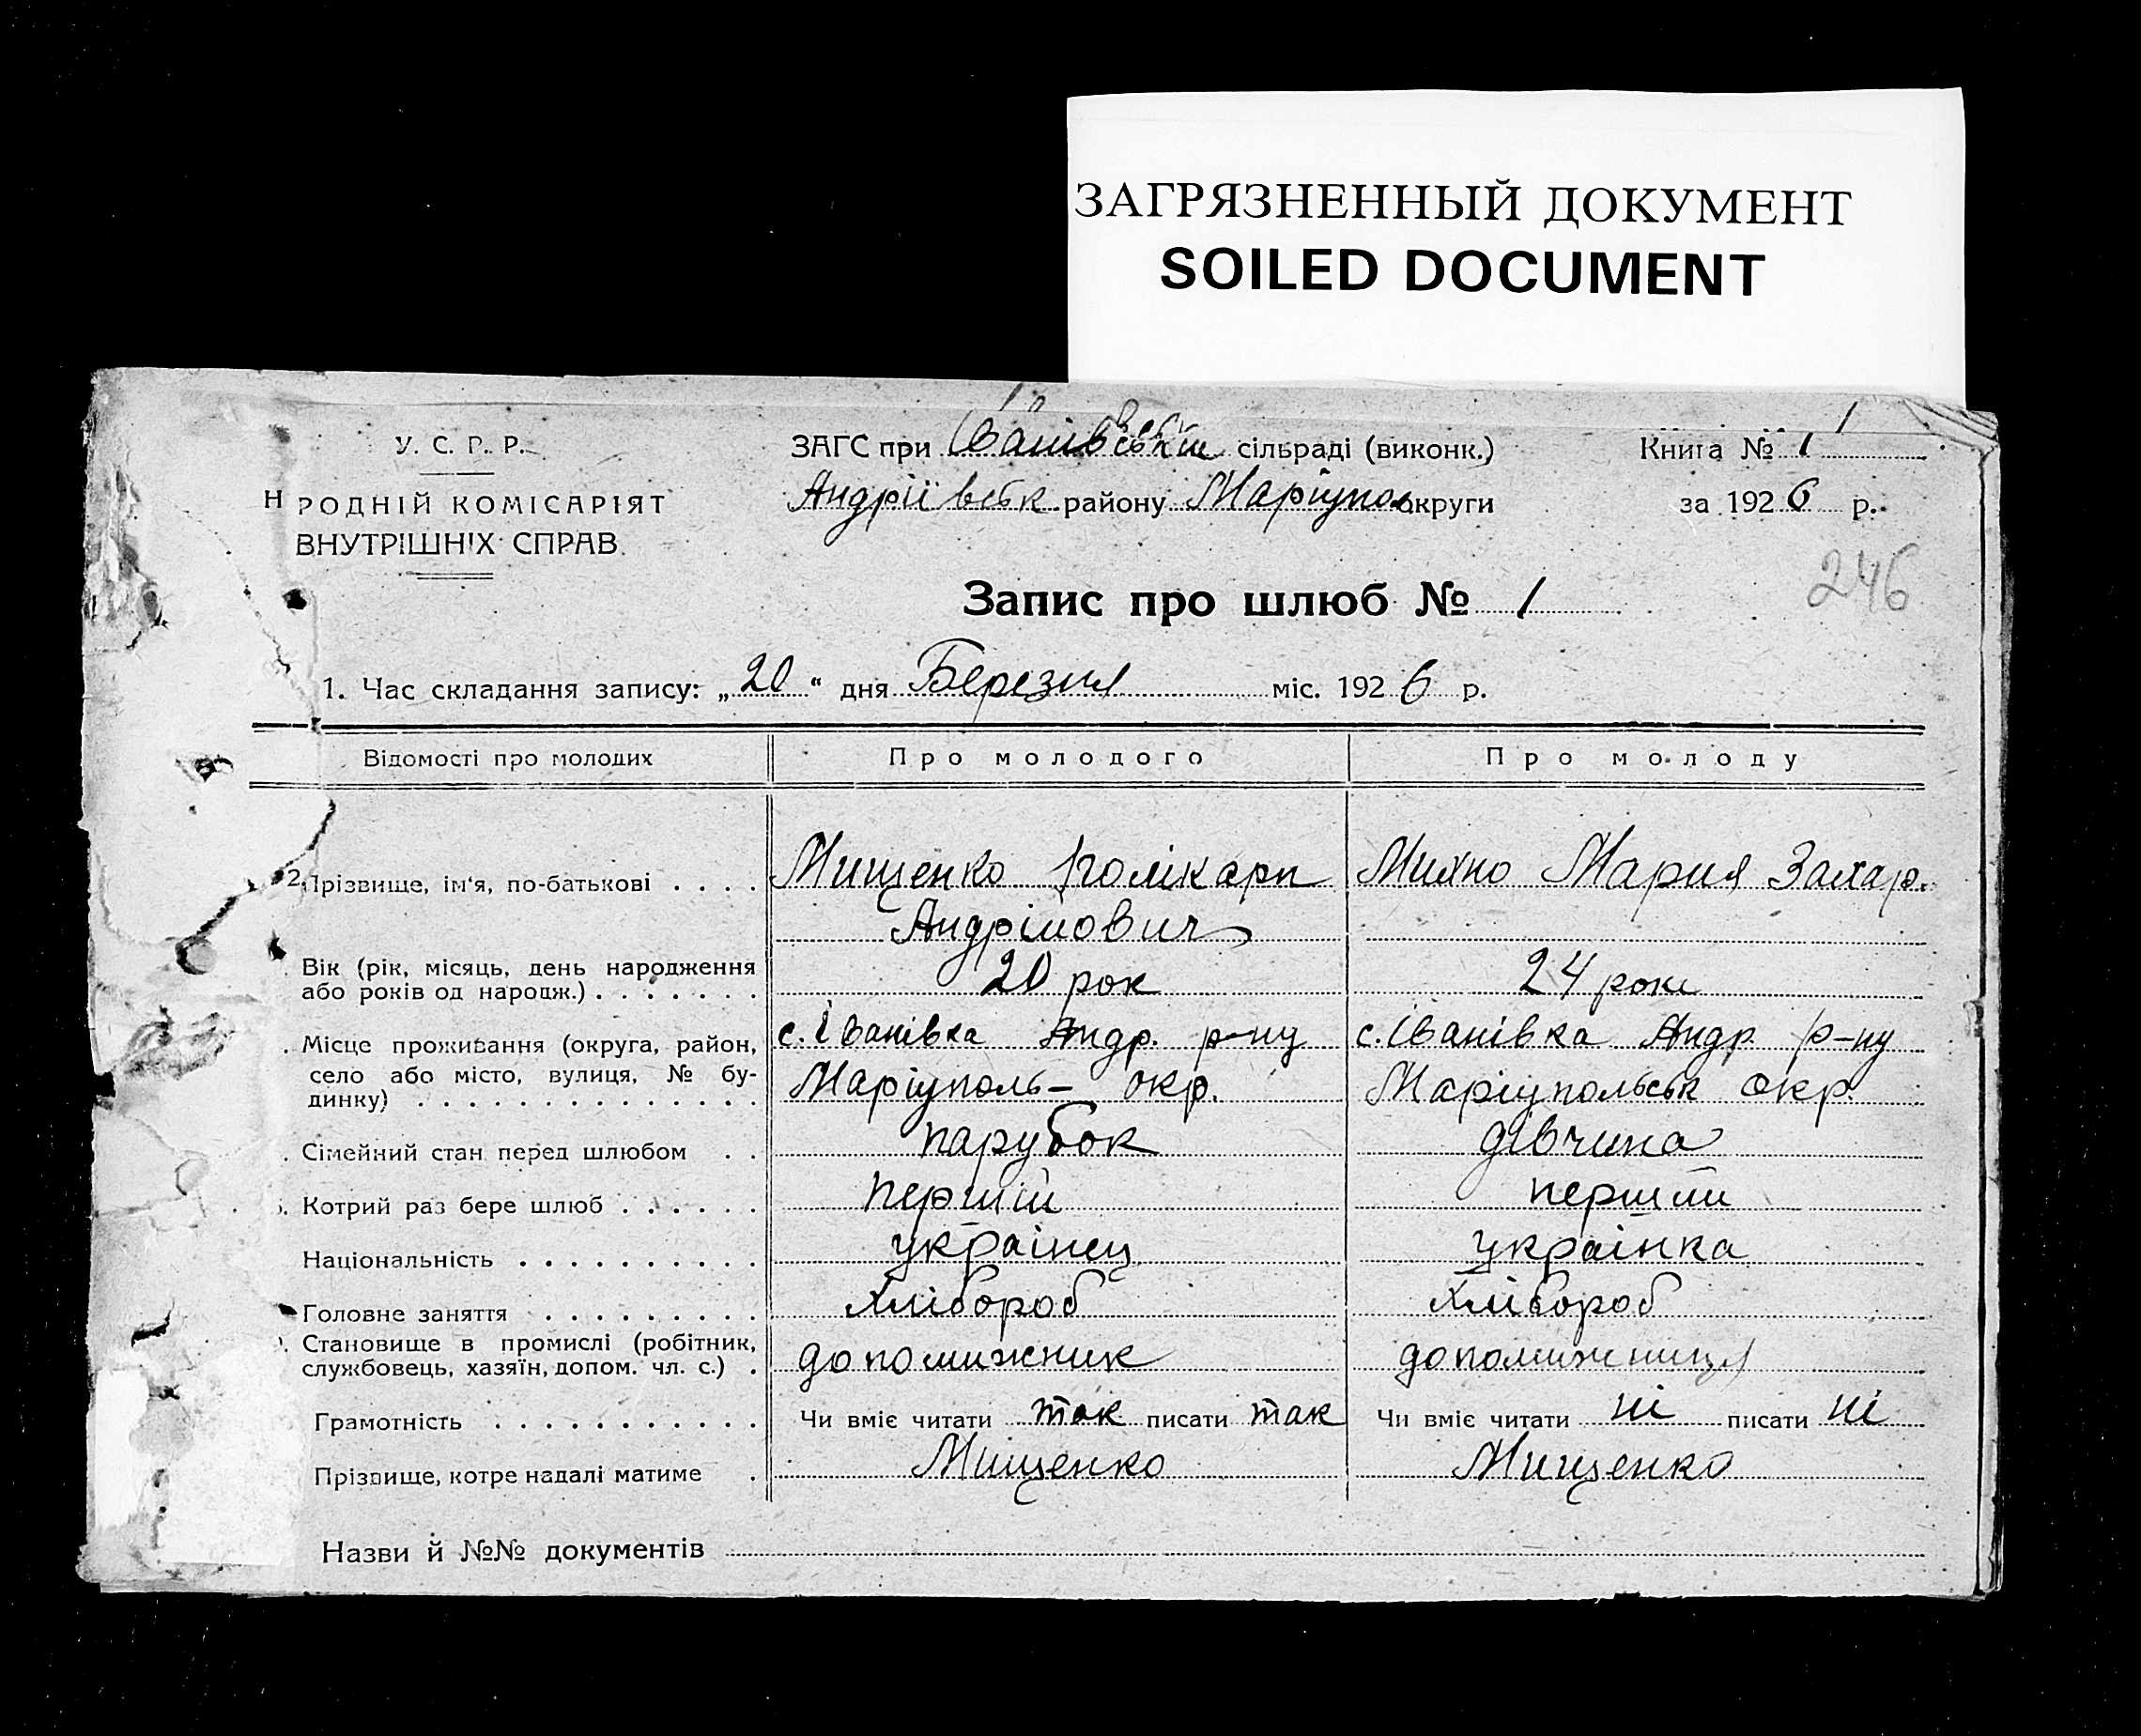 ЗАГРЯЗНЕННЫЙ ДОКУМЕНТ
SOILED DOCUMENT
1
У. С. Р. Р.
ЗАГС при Іванівській сільраді (виконк.)
Книга № 1
Н РОДНІЙ КОМІСАРІЯТ
Андріївськ району Маріупол округи
за 1926 р.
ВНУТРІШНІХ СПРАВ
246
Запис про шлюб № 1
1. Час складання запису: „20“ дня Березня міс. 1926 р.
Відомості про молодих
Про молодого
Про молоду
2. Прізвище, ім‘я, по-батькові . . . .
Мищенко Полікарп
Андрійович
Михно Мария Захар.
Вік (рік, місяць, день народження
або років од народж.) . . . . . . .
20 рок
24 роки
Місце проживання (округа, район,
село або місто, вулиця, № бу-
динку) . . . . . . . . . . . . . .
с. Іванівка Андр. р-ну
Маріуполь- окр.
с. Іванівка Андр. р-ну
Маріупольськ окр.
Сімейний стан перед шлюбом . .
парубок
дівчина
Котрий раз бере шлюб . . . . . .
перший
перший
Національність . . . . . . . . . .
українец
українка
Головне заняття . . . . . . . . .
Хлібороб
Хлібороб
Становище в промислі (робітник,
службовець, хазяїн, допом. чл. с.) .
допомижник
допомижниця
Грамотність . . . . . . . . . . .
Чи вміє читати так писати так
Чи вміє читати ні писати ні
Прізвище, котре надалі матиме .
Мищенко
Мищенко
Назви й №№ документів